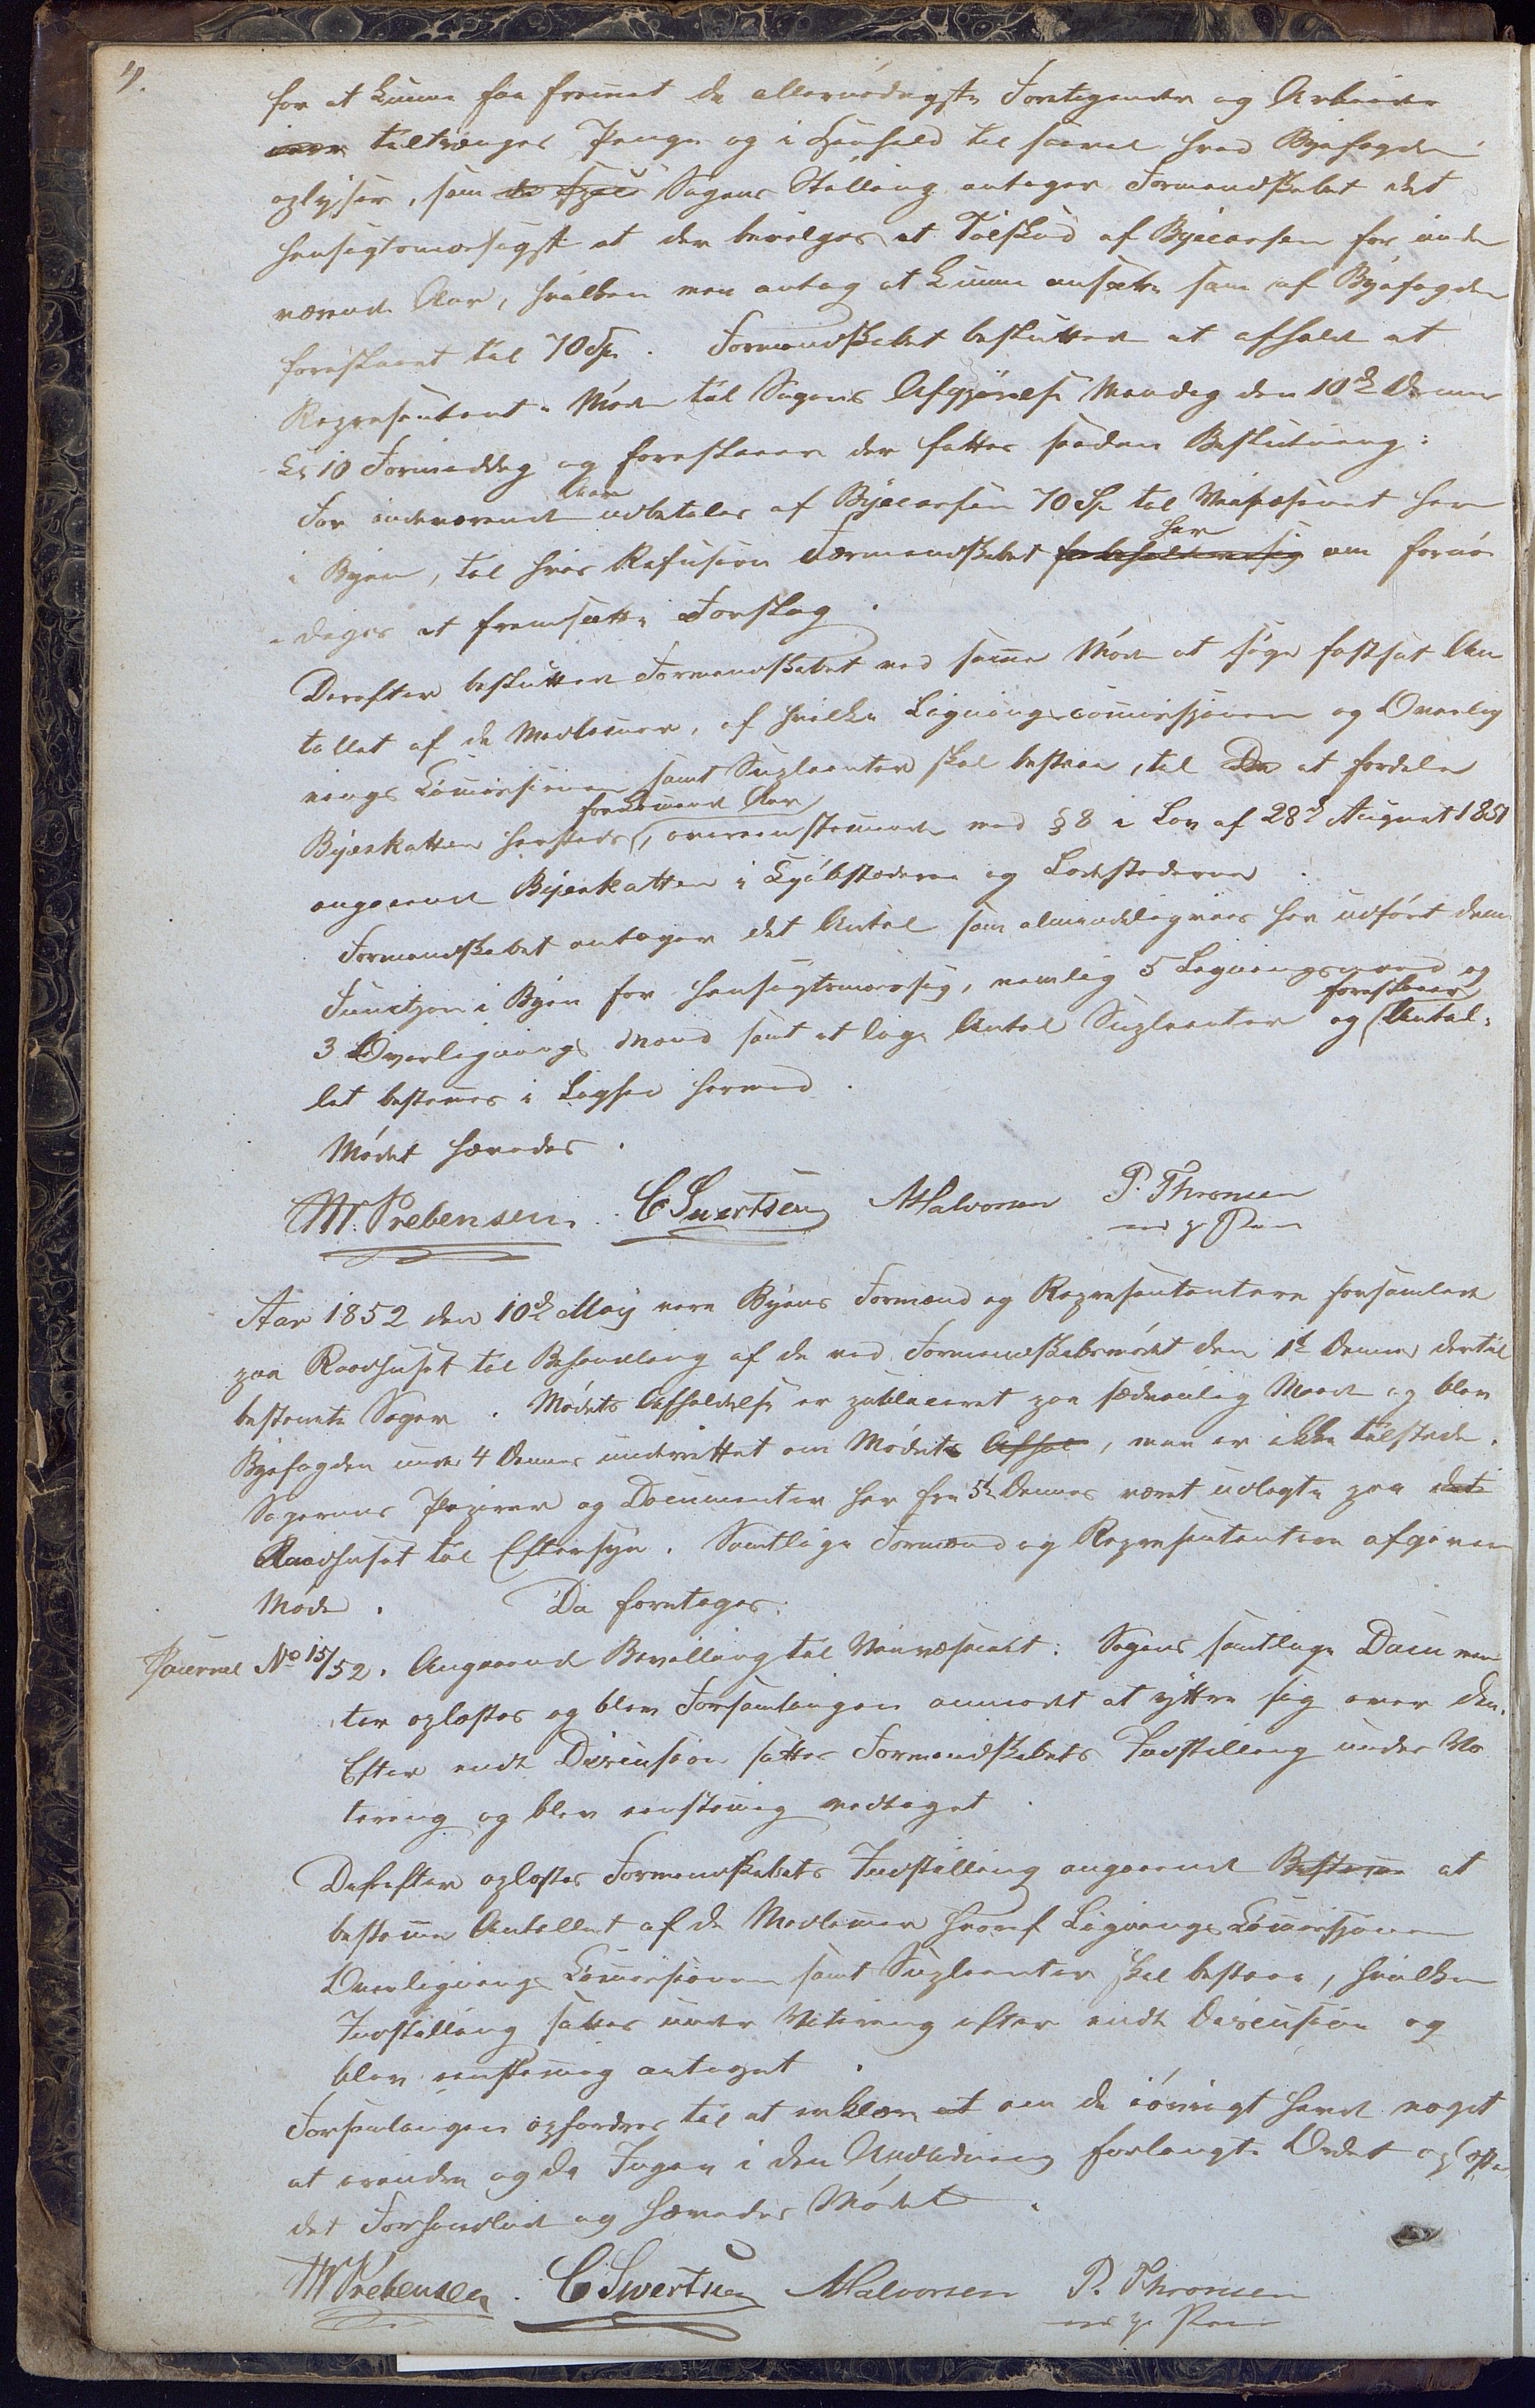 4.
for at kunne faa fremet de allernødvgste Foretagender og Arbeider
tiltrænges Penge og i Henhold til saavel hvad Byfogden
oplyser, som Sagens Stilling antager Formandskabet det
hensigtsmæssigst at der bevilges et Tilskud af Byecassen for inde
værende Aar, hvilken man antog at kunne ansætte som af Byfogden
foreslaaet til 70 Sp. Formandskabet beslutted at afholde et
Repræsentant-Møde til Sagens Afgjørelse Mandag den 10de Dennes
Kl 10 Formiddag og foreslaaer der fattes saadan Beslutning:
For indeværende Aar udbetales af Byecassen 70 Sp til Veivæsenet her
i Byen, til hvis Refusion Formandskabet forbeholder sig har om fornø-
-diges at fremsætte Forslag.
Derefter beslutter Formandskabet ved samme Møde at søge fastsat An
tallet af de Medlemmer, af hvilke Ligningscommissjonen og Overlig
nings Commissionen samt Suppleanter skal bestaae, til at fordele
Byeskatten hersteds forekommende Aar, overensstemmende med § 8 i Lov af 28de August 1851
angaaende Byeskatten i Kjøbstæderne og Ladestederne.
Formandskabet antager det Antal som almindeligviis har udført denne
Function i Byen for hensigtsmæssig, nemlig 5 Ligningsmænd og
3 Overlignings Mænd samt et lige Antal Suppleanter og foreslaaer Antal-
let bestemmes i Lighed hermed.
Mødet hævedes.
M. Prebensen. C Swertsen AHalvorsen P. Thromsen
m p Pen
Aar 1852 den 10de May vare Byens Formænd og Repræsentantere forsamlede
paa Raadhuset til Behandling af de ved Formandskabsmødet den 1ste Dennes dertil
bestemte Sager. Mødets Afholdelse er publiceret paa sædvanlig Maade og blev
Byfogden under 4 Dennes underrettet om Mødets Afhol, men er ikke tilstede.
Sagernes Papirer og Documenter har fra 5te Dennes været udlagte paa det
Raadhuset til Eftersyn. Samtlige Formænd og Repræsentantere afgiver
Møde. Da foretages:
Journal No 15/52. Angaaende Bevilling til Veivæsenet: Sagens samtlige Documen
ter oplæstes og blev Forsamlingen anmodet at yttre sig over den.
Efter endt Discussion sattes Formandskabets Indstilling under Vo
tering og blev eenstemig vedtaget.
Derefter oplæstes Formandskabets Indstilling angaaende Bestemme at
bestemme Antallet af de Medlemmer hvoraf Lignings Commissjonen
Overlignings Commissionen samt Suppleanter skal bestaae, hvilken
Indstilling sattes under Votering efter endt Discussion og
blev eenstemig antaget.
Forsamlingen opfordres til at erklære at om de iøvrigt havde noget
at erindre og da Ingen i den Anledning forlangte Ordet oplæstes
det Forhandlede og hævedes Mødet.
M Prebensen. C Swertsen AHalvorsen P. Thromsen
m p Pen